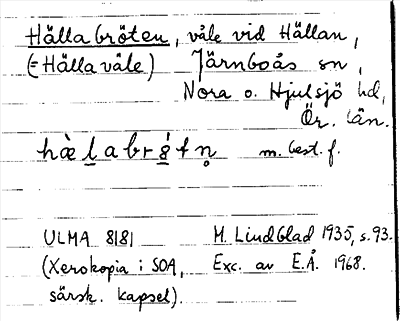 Hällabröten, våle vid Hällan,
(= Hällavåle) Järnboås sn,
Nora o. Hjulsjö hd,
Ör. län.
hὲḷabrǿtn̥ m. best. f.
ULMA 8181 M. Lindblad 1935, s. 93.
(Xerokopia i SOA, Exc. av E.Å. 1968.
särsk. kapsel).